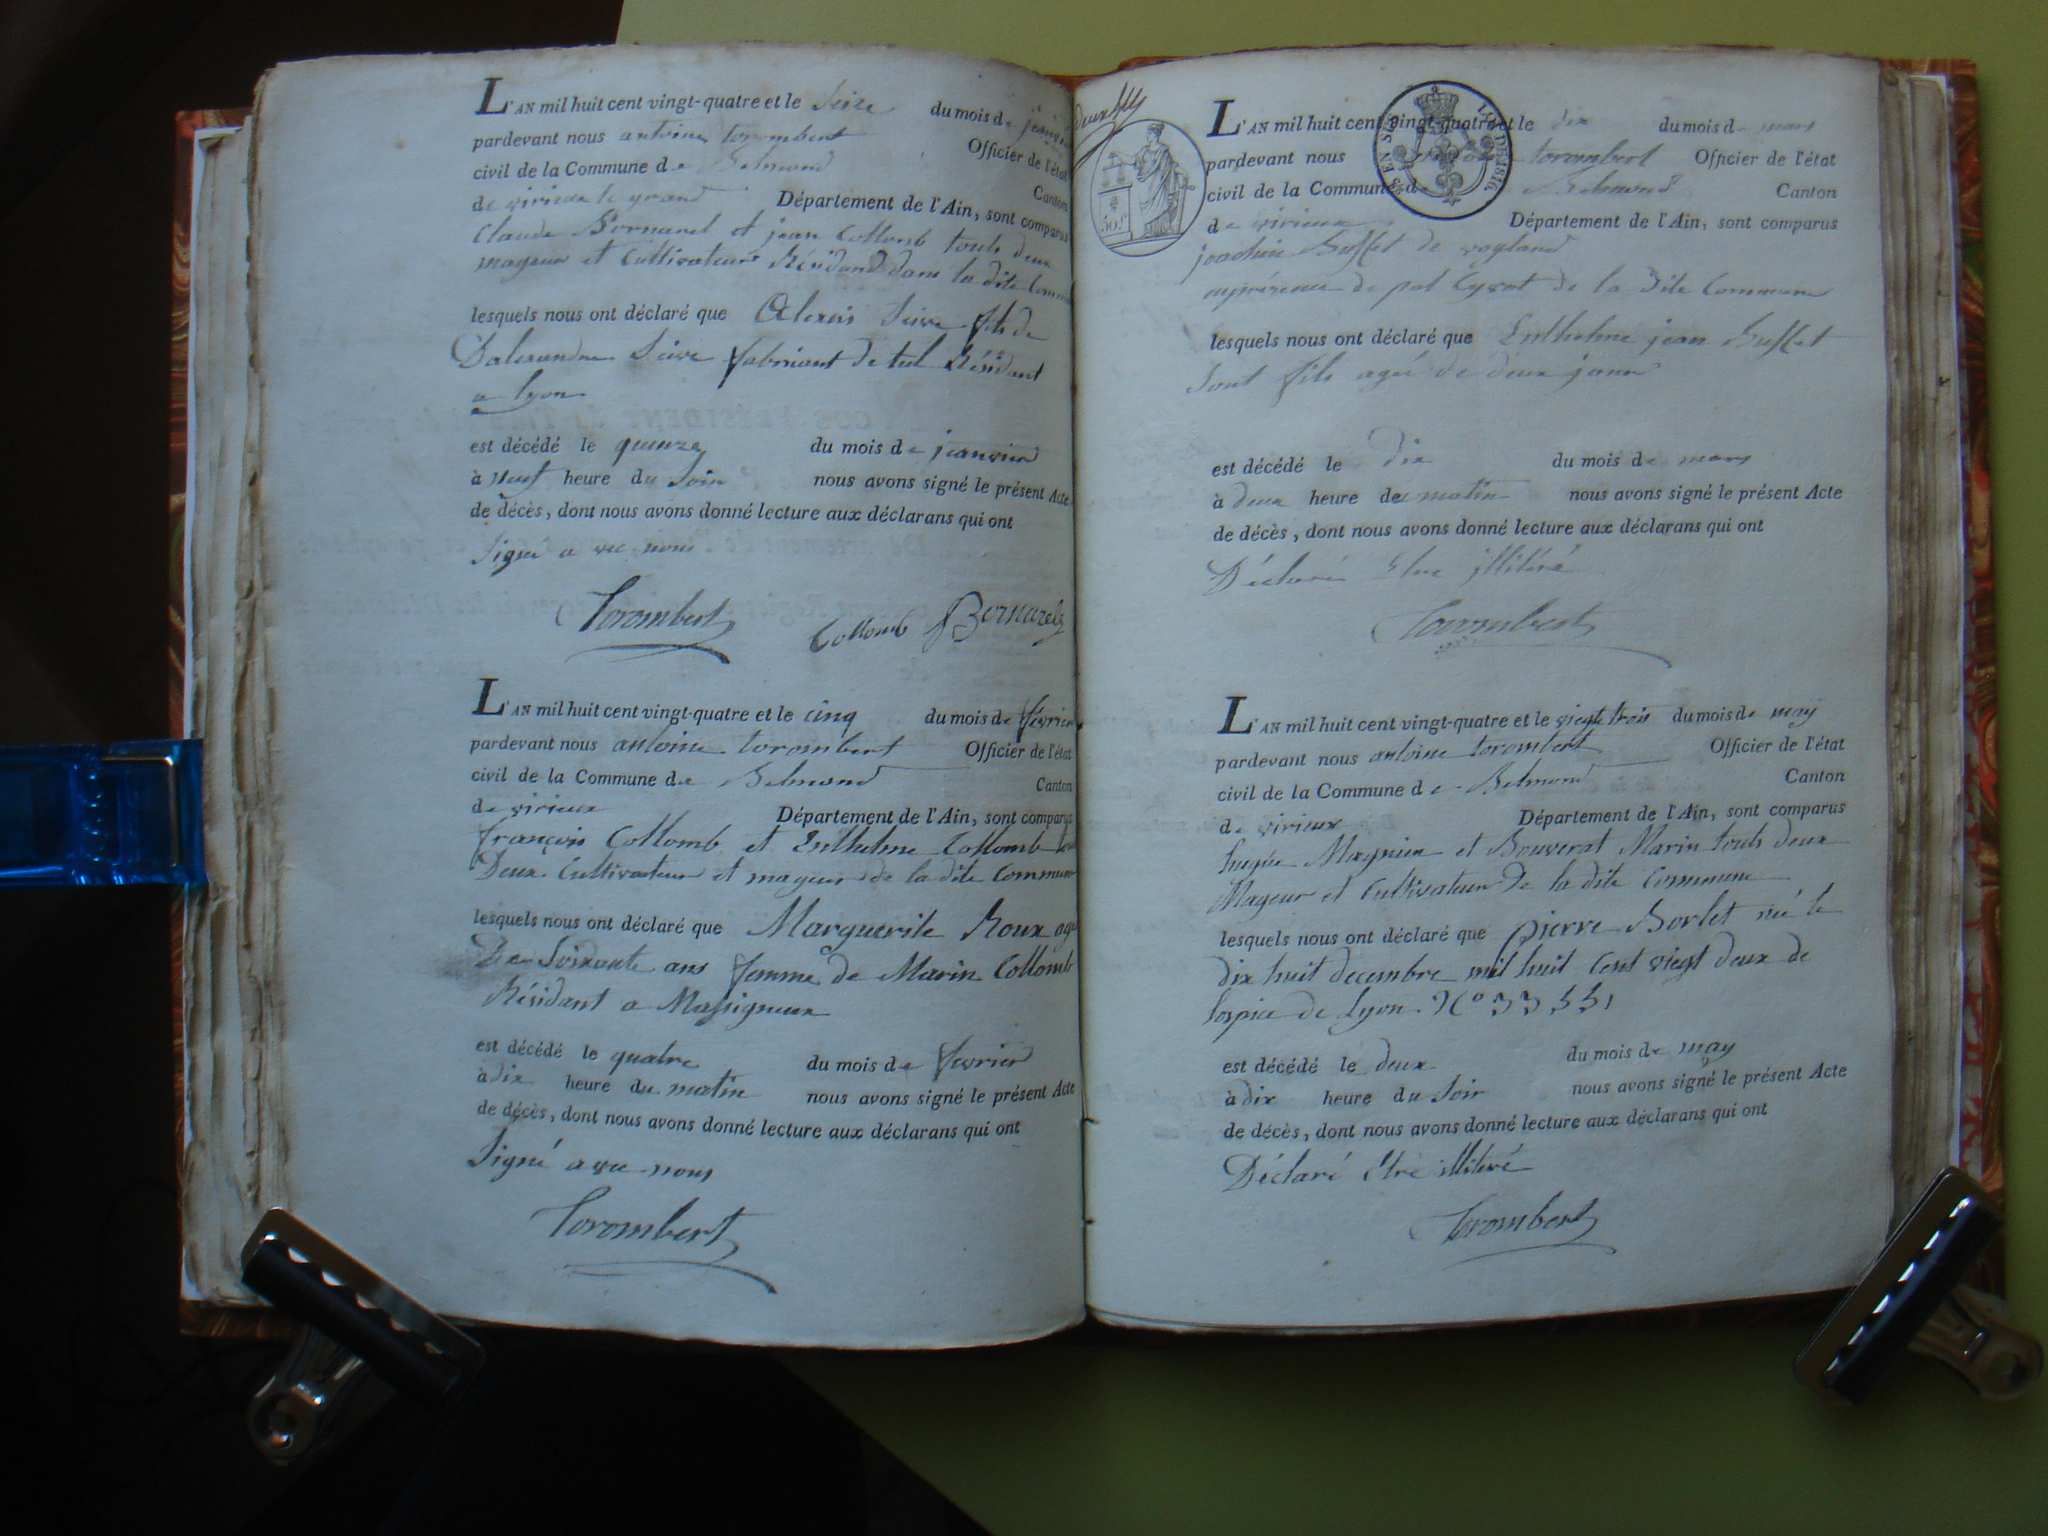 L'AN mil huit cent vingt-quatre et le Seize du mois de janvier
pardevant nous antoine torombert Officier de l'état
civil de la Commune de Belmond Canton
de virieux le grand Département de l'Ain, sont comparus
Claude Bornarel et jean Collomb touts deux
mageur et Cultivateur Résidand dans la dite Commune
lesquels nous ont déclaré que Alexis Seive fils de
Dalexandre Seive fabriant de tul Résidant
a lyon
est décédé le quinze du mois de janvier
à neuf heure du Soir nous avons signé le présent Acte
de décès, dont nous avons donné lecture aux déclarans qui ont
Signé a vec nous
Torombert Collomb Bornarel
L'AN mil huit cent vingt-quatre et le cinq du mois de février
pardevant nous antoine torombert Officier de l'état
civil de la Commune de Belmond Canton
de virieux Département de l'Ain, sont comparus
françois Collomb et Enthelme Collomb
Deux Cultivateur et mageur de la dite Commune
lesquels nous ont déclaré que Marguerite Roux agé
De Soixante ans femme de Marin Collomb
Résidant a Massigneux
est décédé le quatre du mois de fevrier
à dix heure du matin nous avons signé le présent Acte
de décès, dont nous avons donné lecture aux déclarans qui ont
Signé avec nous
Torombert
deux
50 c
L'AN mil huit cent vingt-quatre et le dix du mois de mars
pardevant nous torombert Officier de l'état
civil de la Commune de Belmond Canton
de virieux Département de l'Ain, sont comparus
joachim Buffet de vogland
de la dite Commune
lesquels nous ont déclaré que Enthelme jean Buffet
Sont fils agé de deux jour
est décédé le dix du mois de mars
à deux heure de matin nous avons signé le présent Acte
de décès, dont nous avons donné lecture aux déclarans qui ont
Déclaré Etre illitéré
Torombert
L'AN mil huit cent vingt-quatre et le viegt trois du mois de may
pardevant nous antoine torombert Officier de l'état
civil de la Commune de Belmond Canton
de virieux Département de l'Ain, sont comparus
Magnien et Bouverat Marin touts deux
Mageur et Cultivateur De la dite Commune
lesquels nous ont déclaré que pierre Borlet né le
dix huit decembre mil huit Cent viegt deux de
lospice de Lyon. N°
est décédé le deux du mois de may
à dix heure du Soir nous avons signé le présent Acte
de décès, dont nous avons donné lecture aux déclarans qui ont
Déclaré Etre illitéré
Torombert